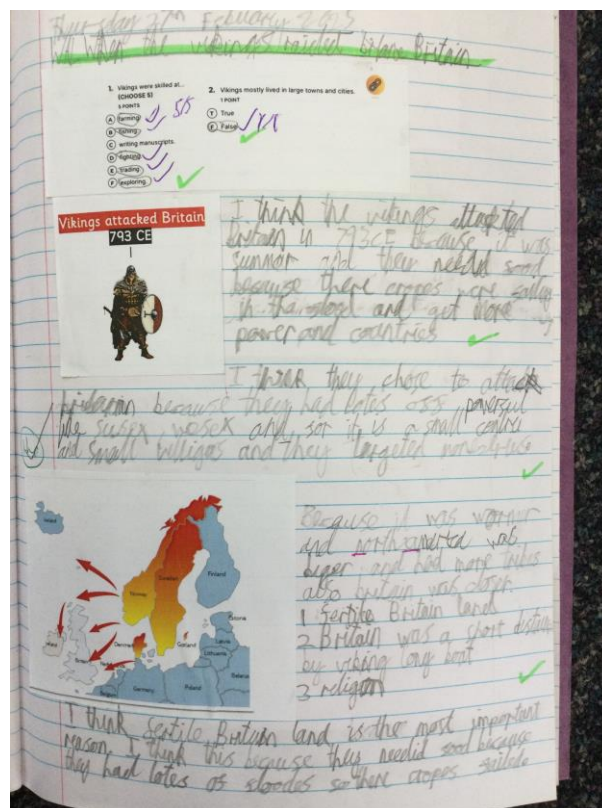 Thursday 27th February 2025
When the vikings raided Britain
1. Vikings were skilled at...
(CHOOSE 5)
5 POINTS
A farming
B fishing
C writing manuscripts.
D fighting
E trading
F exploring
5/5
2. Vikings mostly lived in large towns and cities.
1 POINT
T True
F False
1/1
Vikings attacked Britain
793 CE
I think the vikings attacked
Britain in 793CE because it was
summor and they needid sood
because there cropes were
in the slood and get more
power and countries
I think they chose to attack
because they had lotes oss powersul
like susex wesex and sor it is a small
and small villiges and they targeted
Iceland
Norway
Sweden
Finland
Estonia
Latvia
Lithuania
Denmark
Gotland
Ireland
Britain
Belgium
Germany
Poland
Belarus
Because it was warmur
and was
biger and had more tribes
also britain was closer
1 Sertile Britain land
2 Britain was a short distan
by viking long boat
3 religon
I think sertile Britain land is the most important
reason. I think this because they needid sood because
they had lotes os sloodes so there cropes sailed